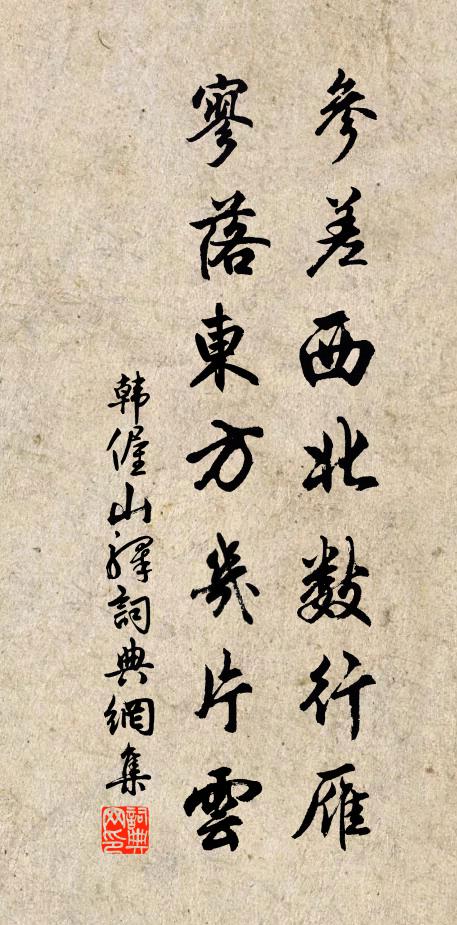 參差西北數行雁
寥落東方幾片雲
韩偓山驛詞典網集
詞典網印